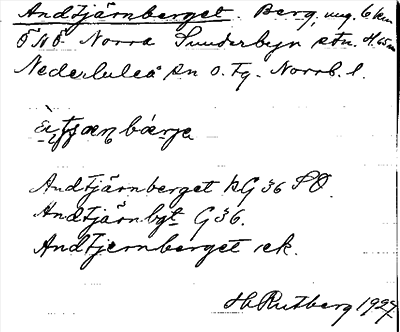 Andtjärnberget. Berg, ung. 6 km
ÖNÖ Norra Sunderbyn stn. H. 65 m
Nederluleå sn o. tg. Norrb. l.
Andtjärnberget kG 36 SO.
Andtjärnbgt G 36.
Andtjernberget ek.
H. Rutberg 1927.